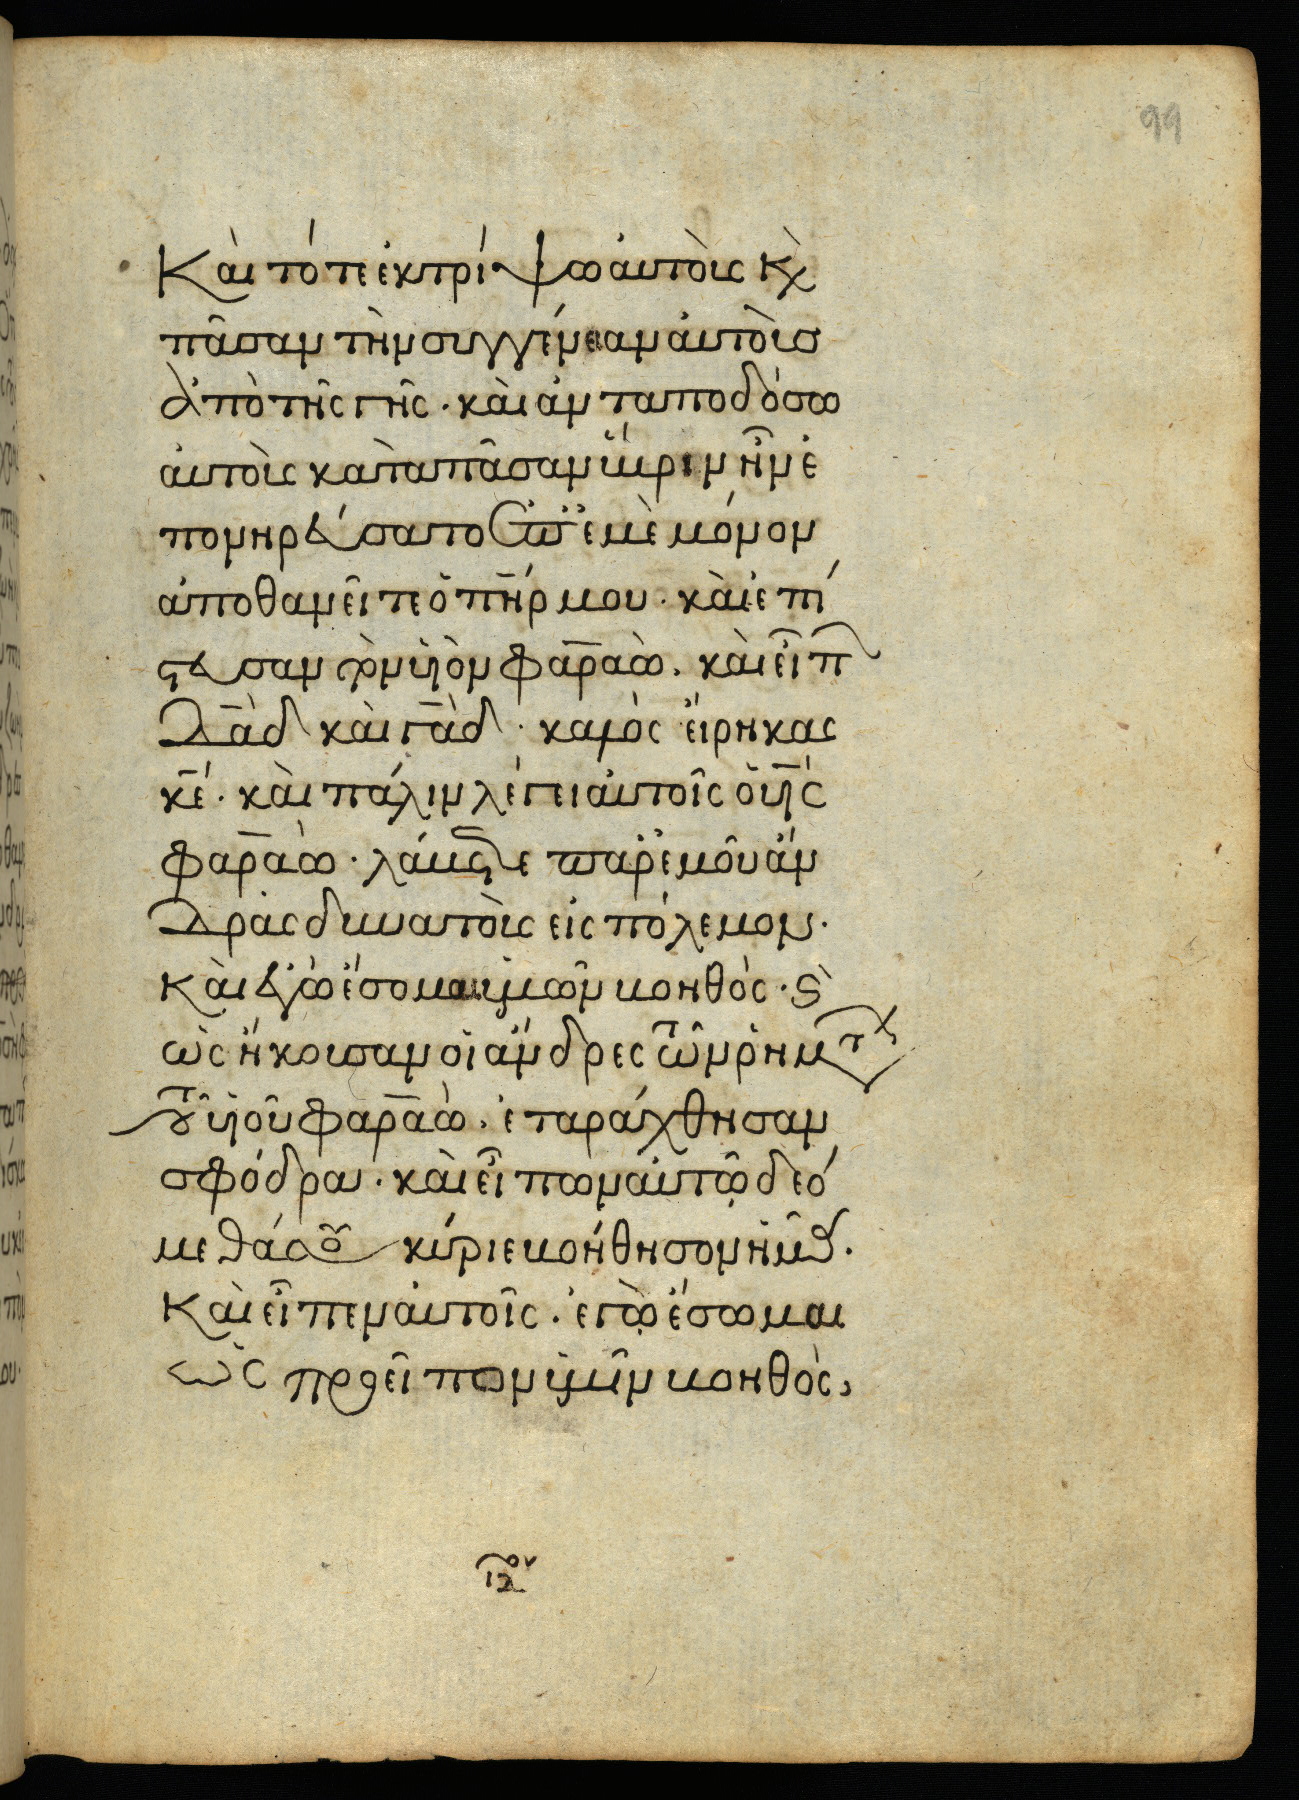 99
Καὶ τότε ἐκτρίψω αὐτοὺς κ(αὶ)
πᾶσαν τὴν συγγένειαν αὐτοῖσ
ἀπὸ τῆς γῆς· καὶ ἀνταποδόσω
αὐτοὺς κατα πᾶσαν ὕβριν ἣν ἐ
πονηρεύσαντο ὥστε μὲ μόνον
ἀποθανεῖτε ὁ π̅η̅ρ μου· καὶ ἐπί
στευσαν τὸν υἱὸν φαραὼ· καὶ εἶπ
δὰδ καὶ γὰδ· καλὸς εἴρηκας
κ̅ε̅· καὶ πάλιν λέγει αὐτοῖς ὁ υἱὸς
φαραὼ· λάμβετε παρ' ἐμοῦ ἄν
δρὰς δυνατοὺς εἰς πόλεμον·
Καὶ ἐγὼ ἔσομαι ὑμῶν βοηθὸς· κ(αὶ)
ὡς ἤκουσαν οἱ ἄνδρες τῶν ῥημάτ(ων)
τοῦ υἱοῦ φαραὼ· ἐταράχθησαν
σφόδρα· καὶ εἶπων αὐτῷ δεό
μεθά σου κύριε βοήθησον ἡμᾶς·
Καὶ εἶπεν αὐτοῖς· ἐγὼ ἔσωμαι
ὡς προεῖπων ὑμῖν βοηθὸς,